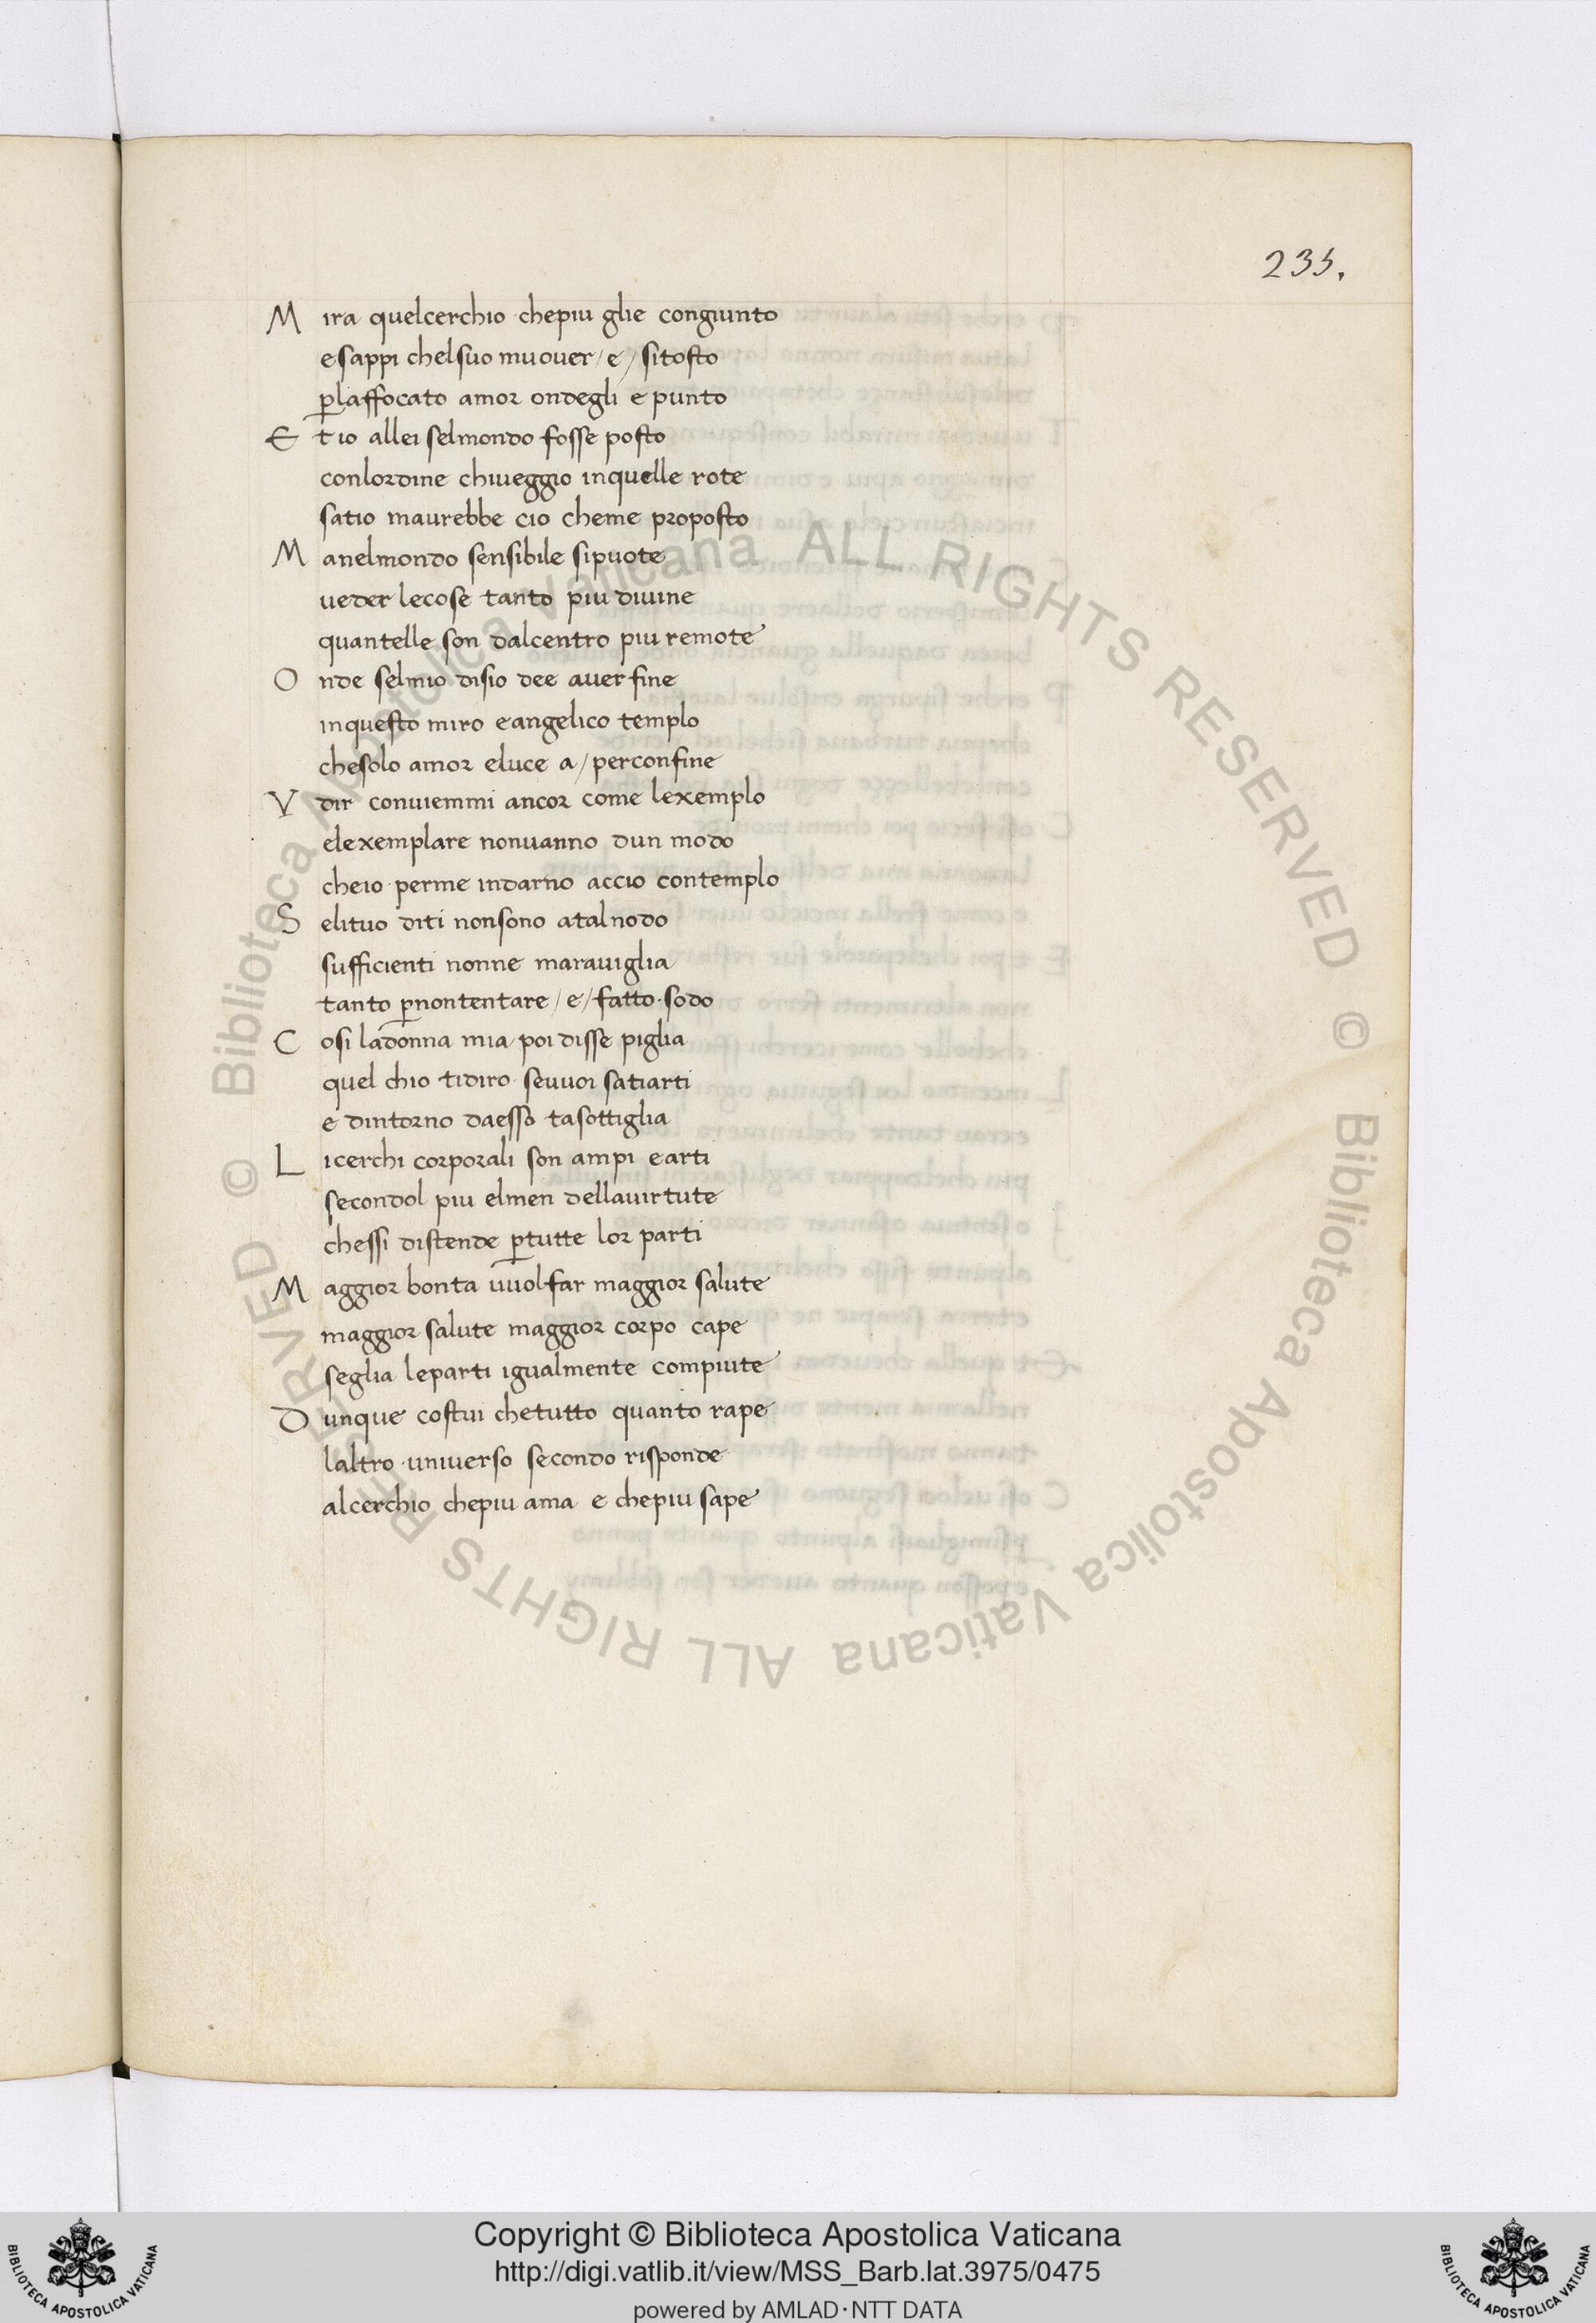 235.
Mira quelcerchio chepiu glie congiunto
esappi chelsuo muouer / e / sitosto
plaffocato amor ondegli e punto
Et io allei selmondo fosse posto
conlordine chiueggio inquelle rote
satio maurebbe cio cheme proposto
Manelmondo sensibile sipuote
ueder lecose tanto piu diuine
quantelle son dalcentro piu remote
Onde selmio disio dee auer fine
inquesto miro eangelico templo
chesolo amor eluce a / perconfine
Vdir conuiemmi ancor come lexemplo
elexemplare nonuanno dun modo
cheio perme indarno accio contemplo
Selituo diti nonsono atalnodo
sufficienti nonne marauiglia
tanto pnontentare / e / fatto sodo
Cosi ladonna mia poi disse piglia
quel chio tidiro seuuoi satiarti
e dintorno daesso tasottiglia
Licerchi corporali son ampi earti
secondol piu elmen dellauirtute
chessi distende ptutte lor parti
Maggior bonta uuolfar maggior salute
maggior salute maggior corpo cape
seglia leparti igualmente compiute
Dunque costui chetutto quanto rape
laltro uniuerso secondo risponde
alcerchio chepiu ama e chepiu sape
© Biblioteca Apostolica Vaticana ALL RIGHTS RESERVED
© Biblioteca Apostolica Vaticana ALL RIGHTS RESERVED
BIBLIOTECA APOSTOLICA VATICANA
Copyright © Biblioteca Apostolica Vaticana
http://digi.vatlib.it/view/MSS_Barb.lat.3975/0475
powered by AMLAD·NTT DATA
BIBLIOTECA APOSTOLICA VATICANA